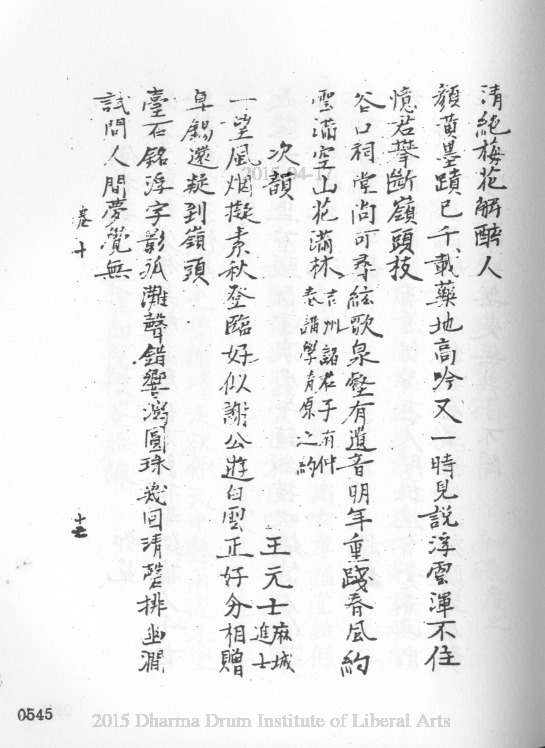 清絕梅花解醉人
顏黃墨蹟已千載藥地高吟又一時見說浮雲渾不住
憶君攀斷嶺頭枝
谷口祠堂尚可尋絃歌泉壑有遺音明年重踐春風約
雲滿空山花滿林吉州諸君子有仲
春講學青原之約
次韻
王元士麻城
進士
一望風烟擬素秋登臨好似謝公遊白雲正好分相贈
卓錫還疑到嶺頭
臺石銘浮字影孤灘聲錯響瀉圓珠幾回清磬排幽澗
試問人間夢覺無
卷十
十七
0545
2015-04-17
2015 Dharma Drum Institute of Liberal Arts